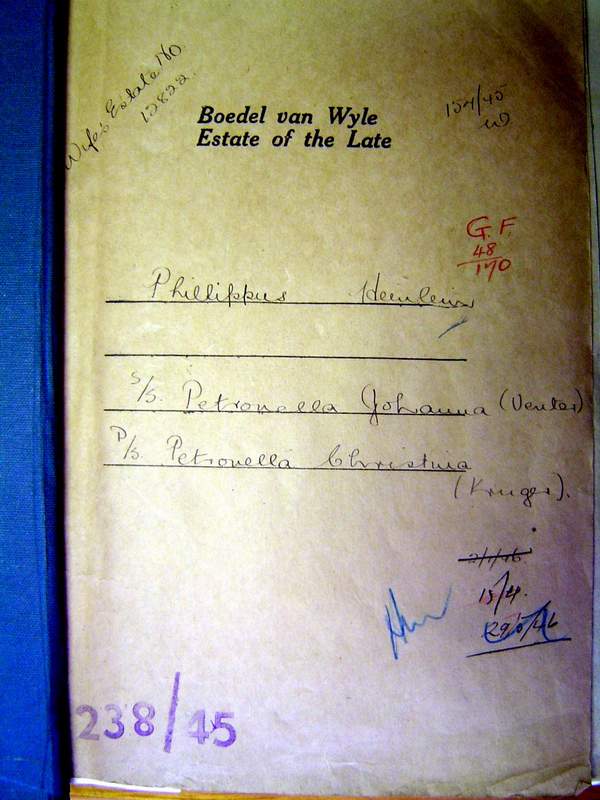 Wife's Estate No
12822
154/45
Boedel van Wyle
Estate of the Late
G.F.
48
170
Phillippus
S/S. Petronella Johanna (Venter)
P/S. Petronella Christina
(Kruger).
2/1/46
15/4.
238/45